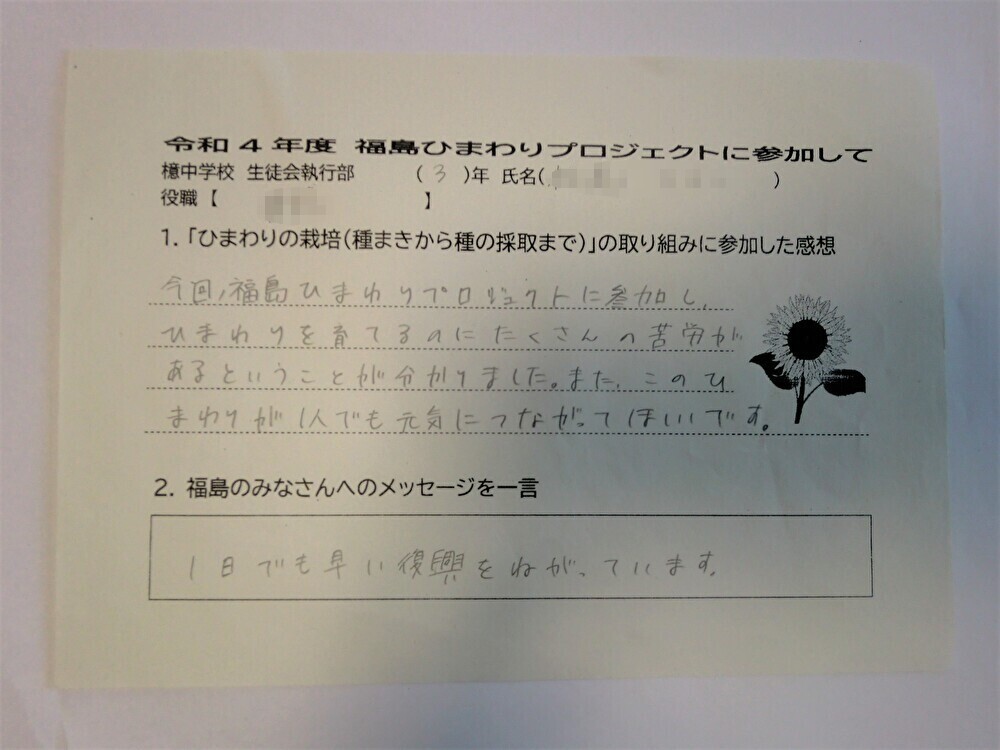 令和4年度 福島ひまわりプロジェクトに参加して
檍中学校 生徒会執行部 (3)年 氏名( )
役職【 】
1.「ひまわりの栽培(種まきから種の採取まで)」の取り組みに参加した感想
今回、福島ひまわりプロジェクトに参加し、
ひまわりを育てるのにたくさんの苦労が
あるということが分かりました。また、このひ
まわりが1人でも元気につながってほしいです。
2. 福島のみなさんへのメッセージを一言
1日でも早い復興をねがっています。